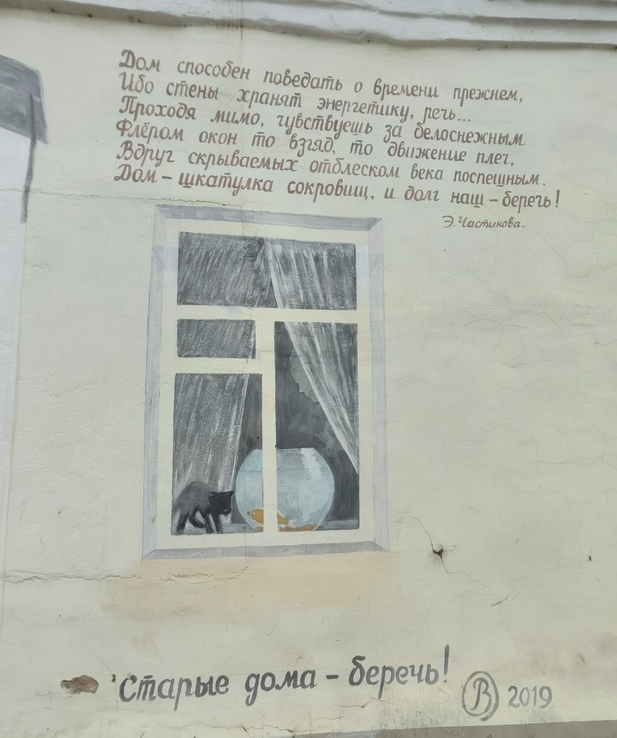 Дом способен поведать о времени прежнем,
Ибо стены хранят энергетику, речь...
Проходя мимо, чувствуешь за белоснежным
Флёром окон то взгляд, то движение плеч,
Вдруг скрываемых отблеском века поспешным.
Дом – шкатулка сокровищ, и долг наш – беречь!
Э. Частикова.
Старые дома – беречь!
В 2019